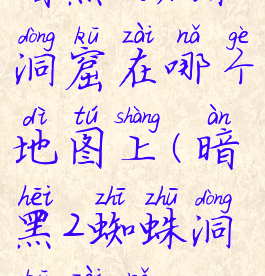 dòng kū zài nǎ gè
洞窟在哪个
dì tú shàng àn
地图上(暗
hēi zhī zhū dòng
黑2蜘蛛洞